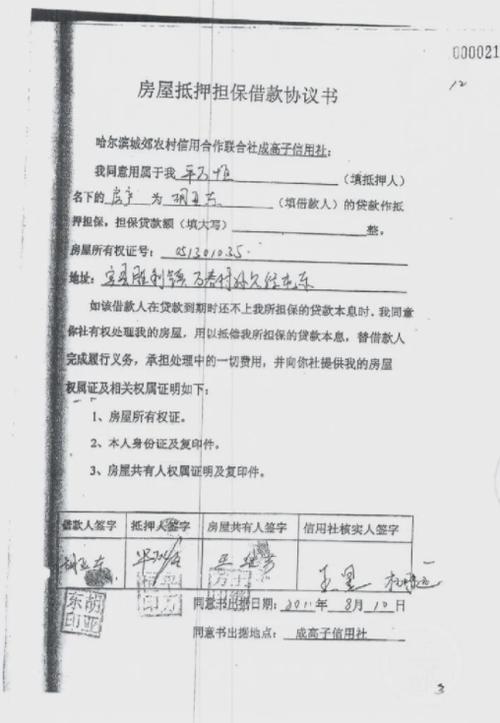 000021
12
房屋抵押担保借款协议书
哈尔滨城郊农村信用合作联合社成高子信用社：
我同意用属于我（填抵押人）
名下的房产为胡亚东（填借款人）的贷款作抵
押担保，担保贷款额（填大写）整。
房屋所有权证号：051301035
地址：宾县胜利镇万
如该借款人在贷款到期时还不上我所担保的贷款本息时，我同意
你社有权处理我的房屋，用以抵偿我所担保的贷款本息，替借款人
完成履行义务，承担处理中的一切费用，并向你社提供我的房屋
权属证及相关权属证明如下：
1、房屋所有权证。
2、本人身份证及复印件。
3、房屋共有人权属证明及复印件。
借款人签字 抵押人签字 房屋共有人签字 信用社核实人签字
胡亚东
胡亚东印
同意书出据日期：2011年8月10日
同意书出据地点：成高子信用社
3